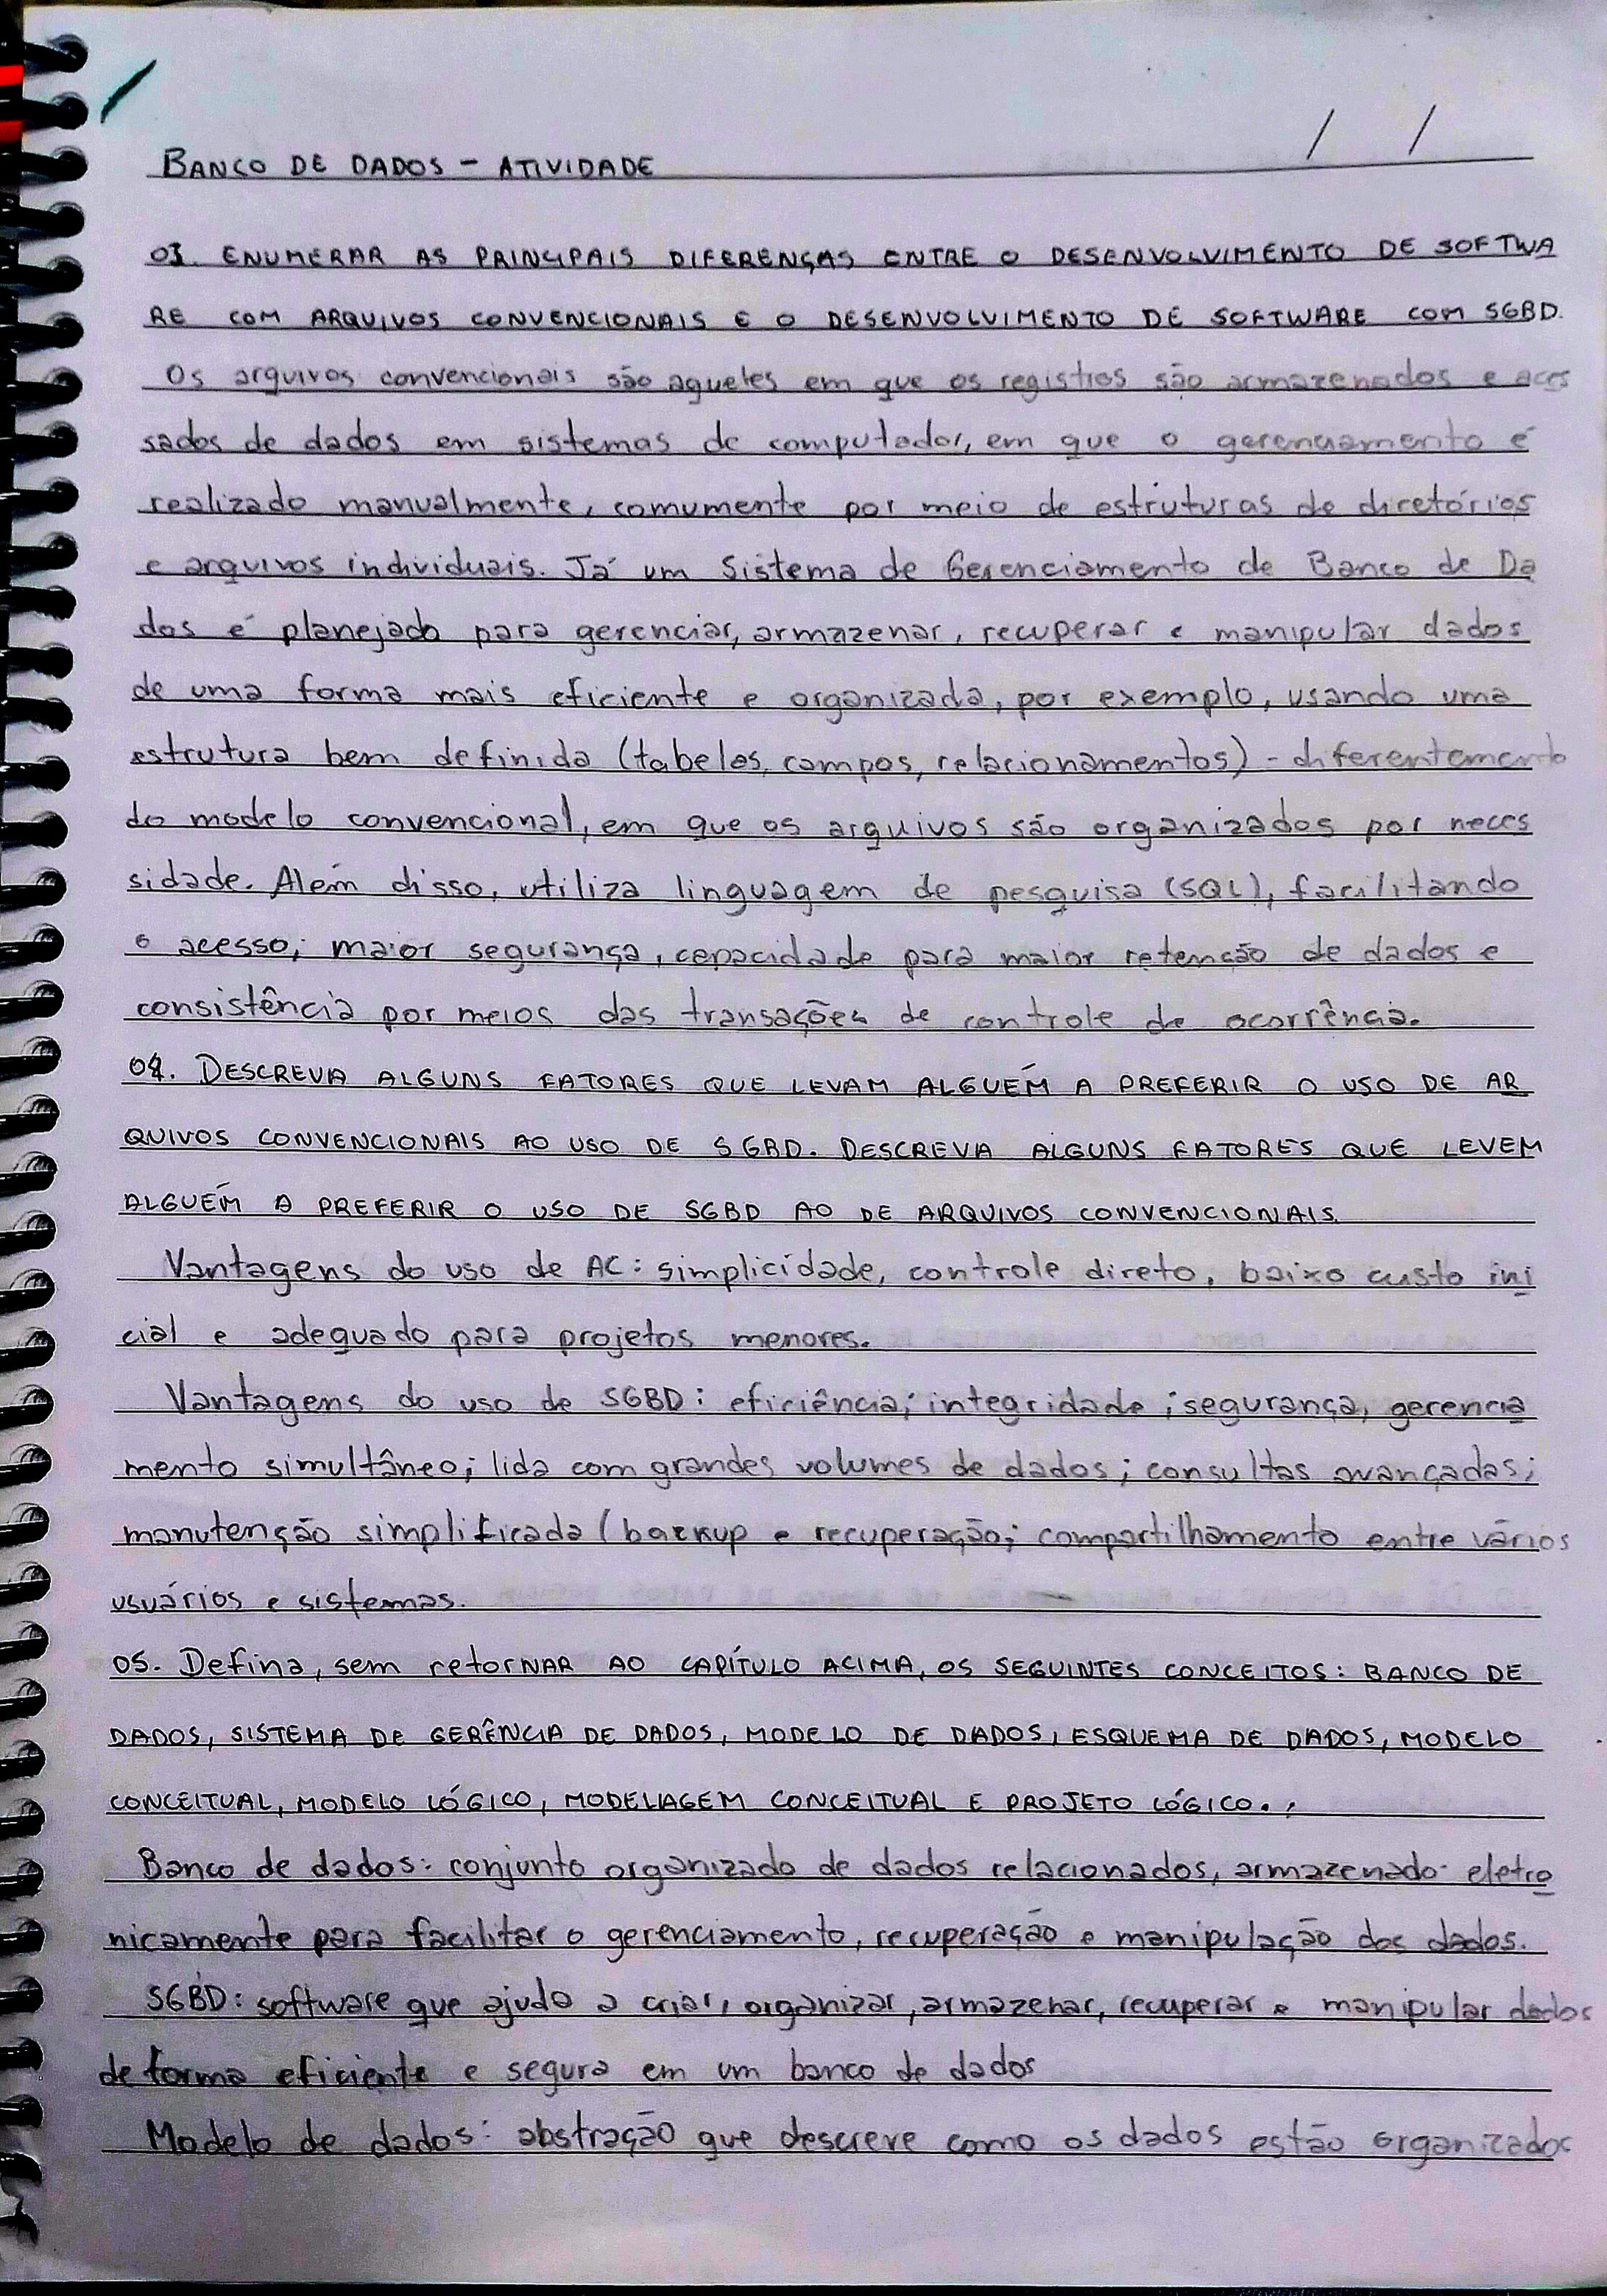 / /
BANCO DE DADOS - ATIVIDADE
03. ENUMERAR AS PRINCIPAIS DIFERENÇAS ENTRE O DESENVOLVIMENTO DE SOFTWA
RE COM ARQUIVOS CONVENCIONAIS E O DESENVOLVIMENTO DE SOFTWARE COM SGBD.
Os arquivos convencionais são aqueles em que os registros são armazenados e aces
sados de dados em sistemas de computador, em que o gerenciamento é
realizado manualmente, comumente por meio de estruturas de diretórios
e arquivos individuais. Já um Sistema de Gerenciamento de Banco de Da
dos é planejado para gerenciar, armazenar, recuperar e manipular dados
de uma forma mais eficiente e organizada, por exemplo, usando uma
estrutura bem definida (tabelas, campos, relacionamentos) - diferentemente
do modelo convencional, em que os arquivos são organizados por neces
sidade. Além disso, utiliza linguagem de pesquisa (SQL), facilitando
o acesso; maior segurança, capacidade para maior retenção de dados e
consistência por meios das transações de controle de ocorrência.
04. DESCREVA ALGUNS FATORES QUE LEVAM ALGUÉM A PREFERIR O USO DE AR
QUIVOS CONVENCIONAIS AO USO DE SGBD. DESCREVA ALGUNS FATORES QUE LEVEM
ALGUÉM A PREFERIR O USO DE SGBD AO DE ARQUIVOS CONVENCIONAIS.
Vantagens do uso de AC: simplicidade, controle direto, baixo custo ini
cial e adequado para projetos menores.
Vantagens do uso de SGBD: eficiência; integridade; segurança, gerencia
mento simultâneo; lida com grandes volumes de dados; consultas avançadas;
manutenção simplificada (backup e recuperação; compartilhamento entre vários
usuários e sistemas.
05. Defina, sem retorNAR AO CAPÍTULO ACIMA, OS SEGUINTES CONCEITOS: BANCO DE
DADOS, SISTEMA DE GERÊNCIA DE DADOS, MODELO DE DADOS, ESQUEMA DE DADOS, MODELO
CONCEITUAL, MODELO LÓGICO, MODELAGEM CONCEITUAL E PROJETO LÓGICO.
Banco de dados: conjunto organizado de dados relacionados, armazenado eletro
nicamente para facilitar o gerenciamento, recuperação e manipulação dos dados.
SGBD: software que ajuda a criar, organizar, armazenar, recuperar e manipular dados
de forma eficiente e segura em um banco de dados
Modelo de dados: abstração que descreve como os dados estão organizados